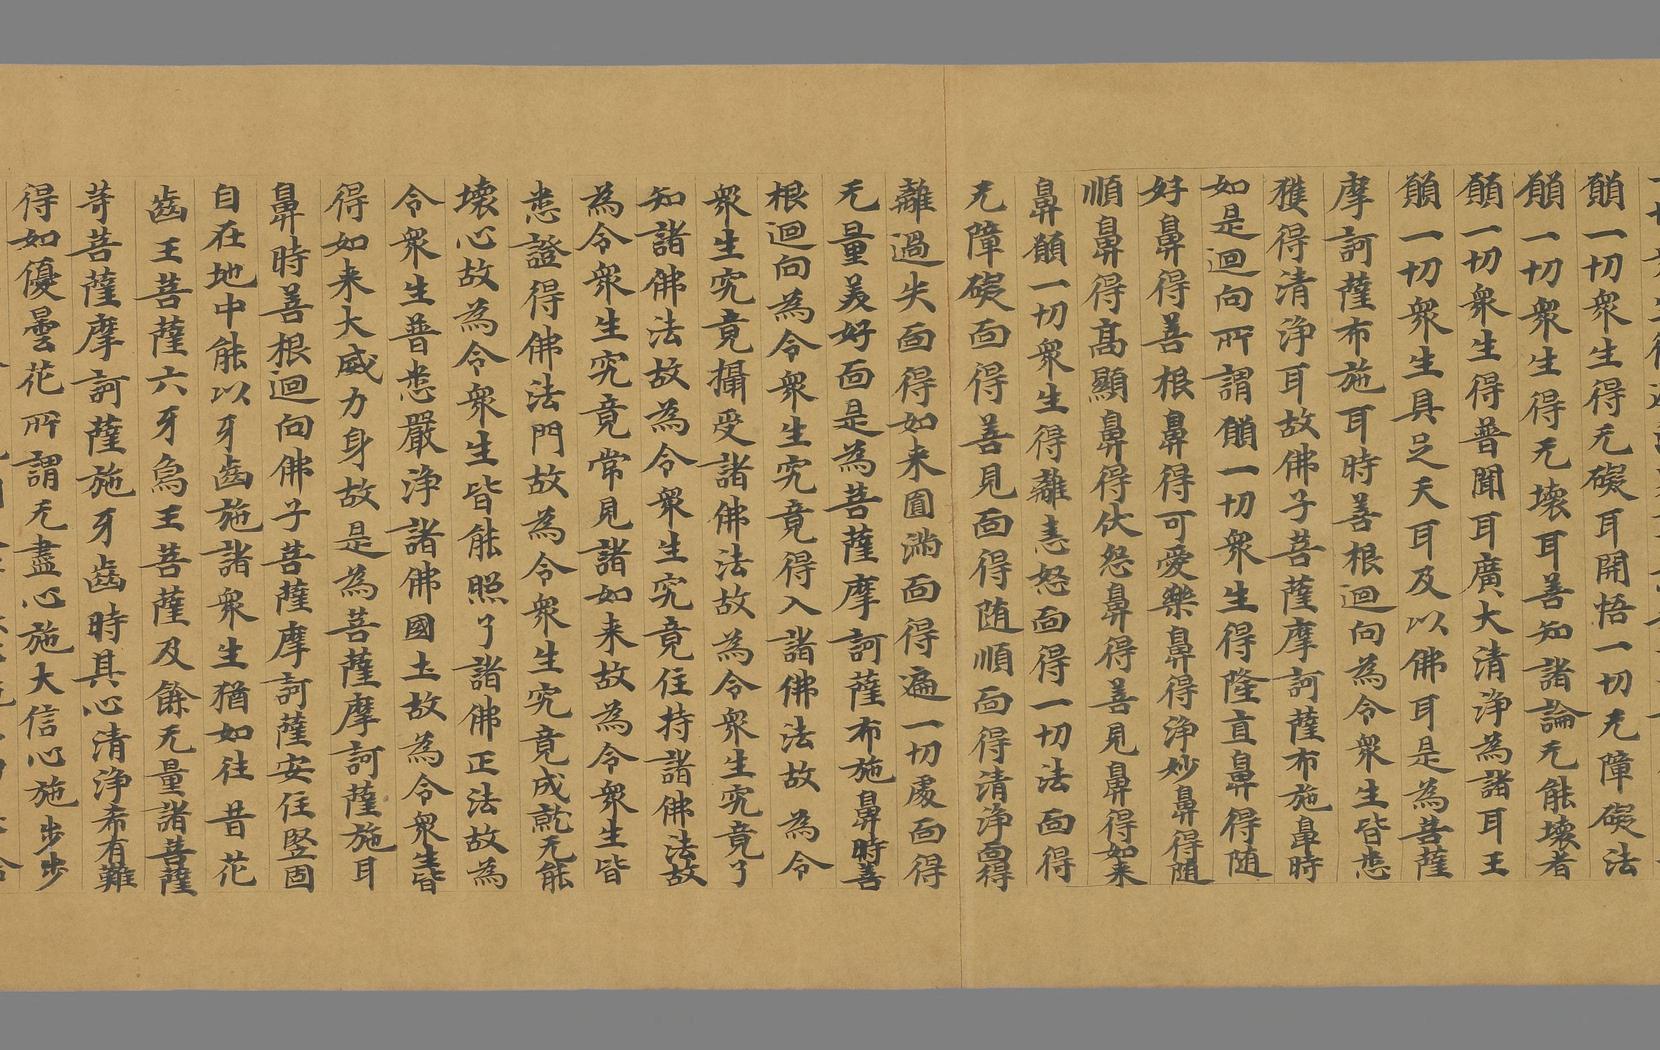 願一切衆生得无礙耳開悟一切无障礙法
願一切衆生得无壞耳善知諸論无能壞者
願一切衆生得普聞耳廣大清淨為諸耳王
願一切衆生具足天耳及以佛耳是為菩薩
摩訶薩布施耳時善根迴向為令衆生皆悉
獲得清淨耳故佛子菩薩摩訶薩布施鼻時
如是迴向所謂願一切衆生得隆直鼻得随
好鼻得善根鼻得可愛樂鼻得淨妙鼻得随
順鼻得高顯鼻得伏怨鼻得善見鼻得如来
鼻願一切衆生得離恚怒面得一切法面得
无障礙面得善見面得随順面得清淨面得
離過失面得如来圓滿面得遍一切處面得
无量美好面是為菩薩摩訶薩布施鼻時善
根迴向為令衆生究竟得入諸佛法故為令
衆生究竟攝受諸佛法故為令衆生究竟了
知諸佛法故為令衆生究竟住持諸佛法故
為令衆生究竟常見諸如来故為令衆生皆
悉證得佛法門故為令衆生究竟成就无能
壞心故為令衆生皆能照了諸佛正法故為
令衆生普悉嚴淨諸佛國土故為令衆生皆
得如来大威力身故是為菩薩摩訶薩施耳
鼻時善根迴向佛子菩薩摩訶薩安住堅固
自在地中能以牙齒施諸衆生猶如往昔花
齒王菩薩六牙鳥王菩薩及餘无量諸菩薩
等菩薩摩訶薩施牙齒時其心清淨希有難
得如優曇花所謂无盡心施大信心施步步